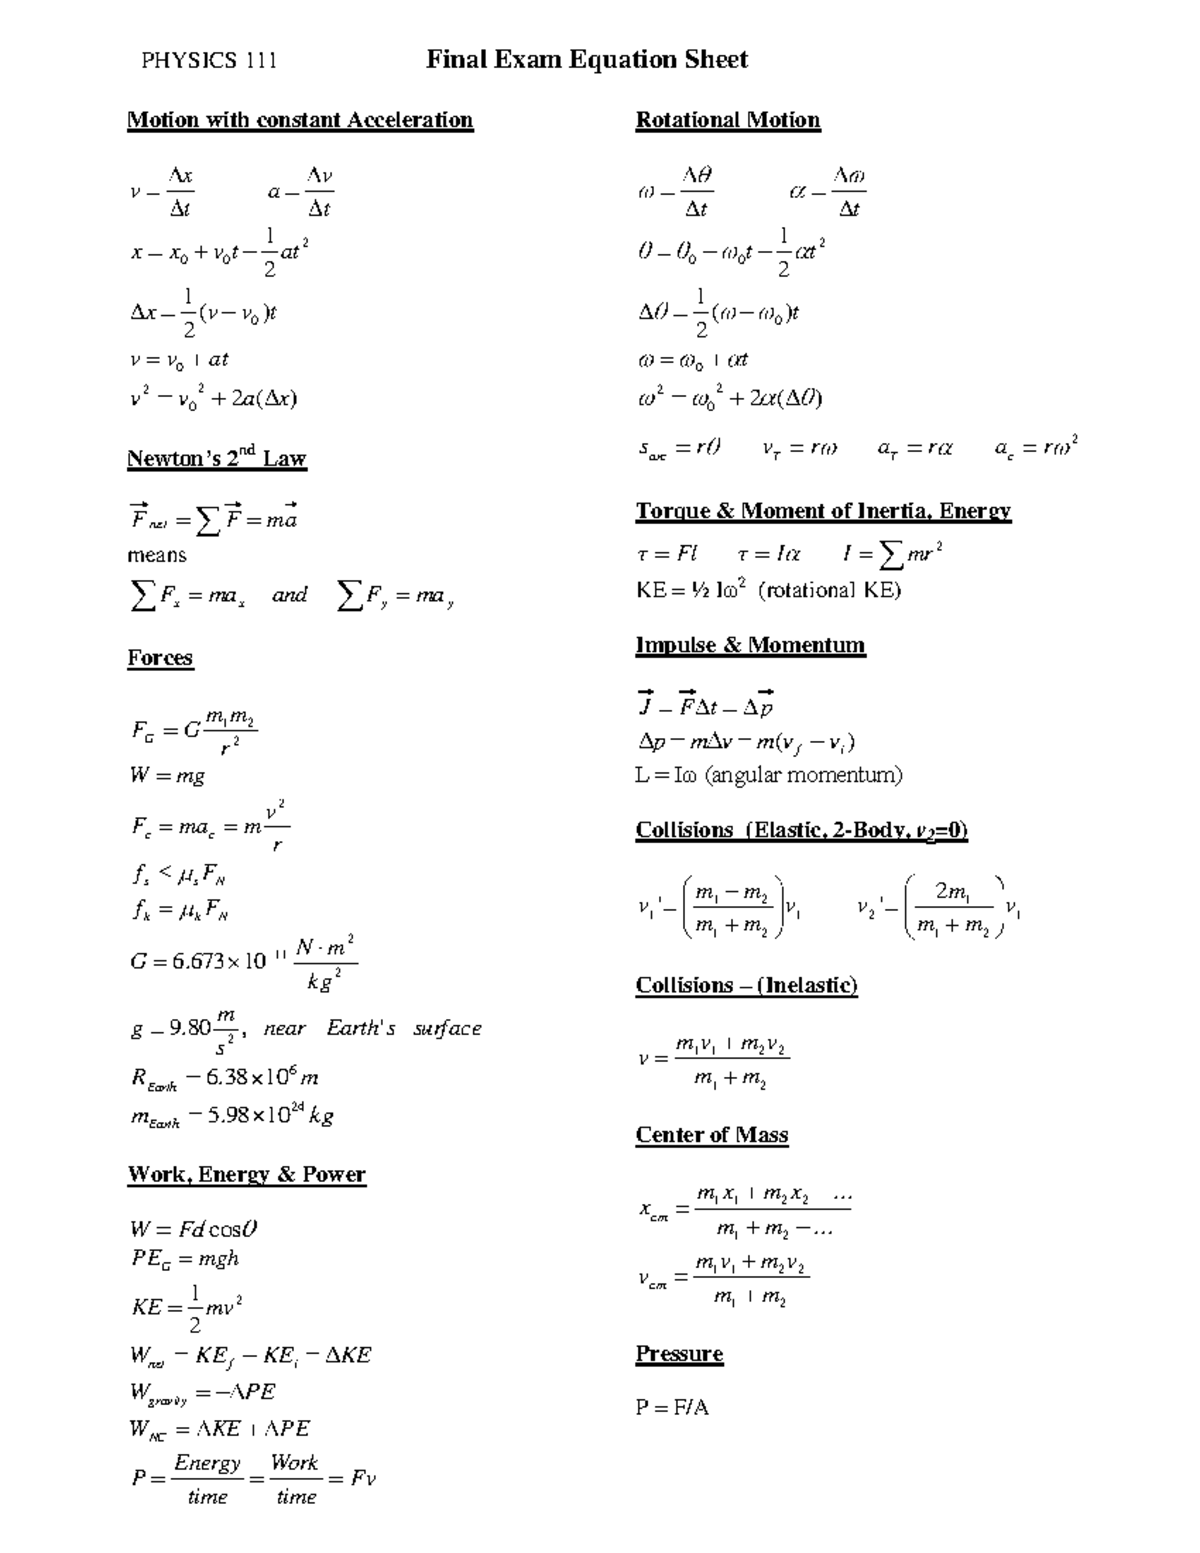 PHYSICS 111 Final Exam Equation Sheet
Motion with constant Acceleration
v – Δx/Δt a – Δv/Δt
x – x₀ + v₀t – 1/2 at²
Δx – 1/2 (v – v₀)t
v = v₀ + at
v² – v₀² + 2a(Δx)
Newton's 2nd Law
F⃗net = ∑ F⃗ = ma⃗
means
∑ Fx = max and ∑ Fy = may
Forces
FG = G m₁m₂/r²
W = mg
Fc = mac = m v²/r
fs < μsFN
fk = μkFN
G = 6.673 × 10⁻¹¹ N · m²/kg²
g – 9.80 m/s², near Earth's surface
REarth – 6.38 × 10⁶ m
mEarth – 5.98 × 10²⁴ kg
Work, Energy & Power
W = Fd cosθ
PEG = mgh
KE = 1/2 mv²
Wnet – KEf – KEi – ΔKE
Wgravity = –ΔPE
WNC = ΔKE + ΔPE
P = Energy/time = Work/time = Fv
Rotational Motion
ω – Δθ/Δt α – Δω/Δt
θ – θ₀ – ω₀t – 1/2 αt²
Δθ – 1/2 (ω – ω₀)t
ω = ω₀ + αt
ω² – ω₀² + 2α(Δθ)
sarc = rθ vT = rω aT = rα ac = rω²
Torque & Moment of Inertia, Energy
τ = Fl τ = Iα I = ∑ mr²
KE = ½ Iω² (rotational KE)
Impulse & Momentum
J⃗ – F⃗Δt – Δp⃗
Δp – mΔv – m(vf – vi)
L = Iω (angular momentum)
Collisions (Elastic, 2-Body, v₂=0)
v₁' – ((m₁ – m₂)/(m₁ + m₂))v₁ v₂' – (2m₁/(m₁ + m₂))v₁
Collisions – (Inelastic)
v = (m₁v₁ + m₂v₂)/(m₁ + m₂)
Center of Mass
xcm = (m₁x₁ + m₂x₂ ...)/(m₁ + m₂ – ...)
vcm = (m₁v₁ + m₂v₂)/(m₁ + m₂)
Pressure
P = F/A